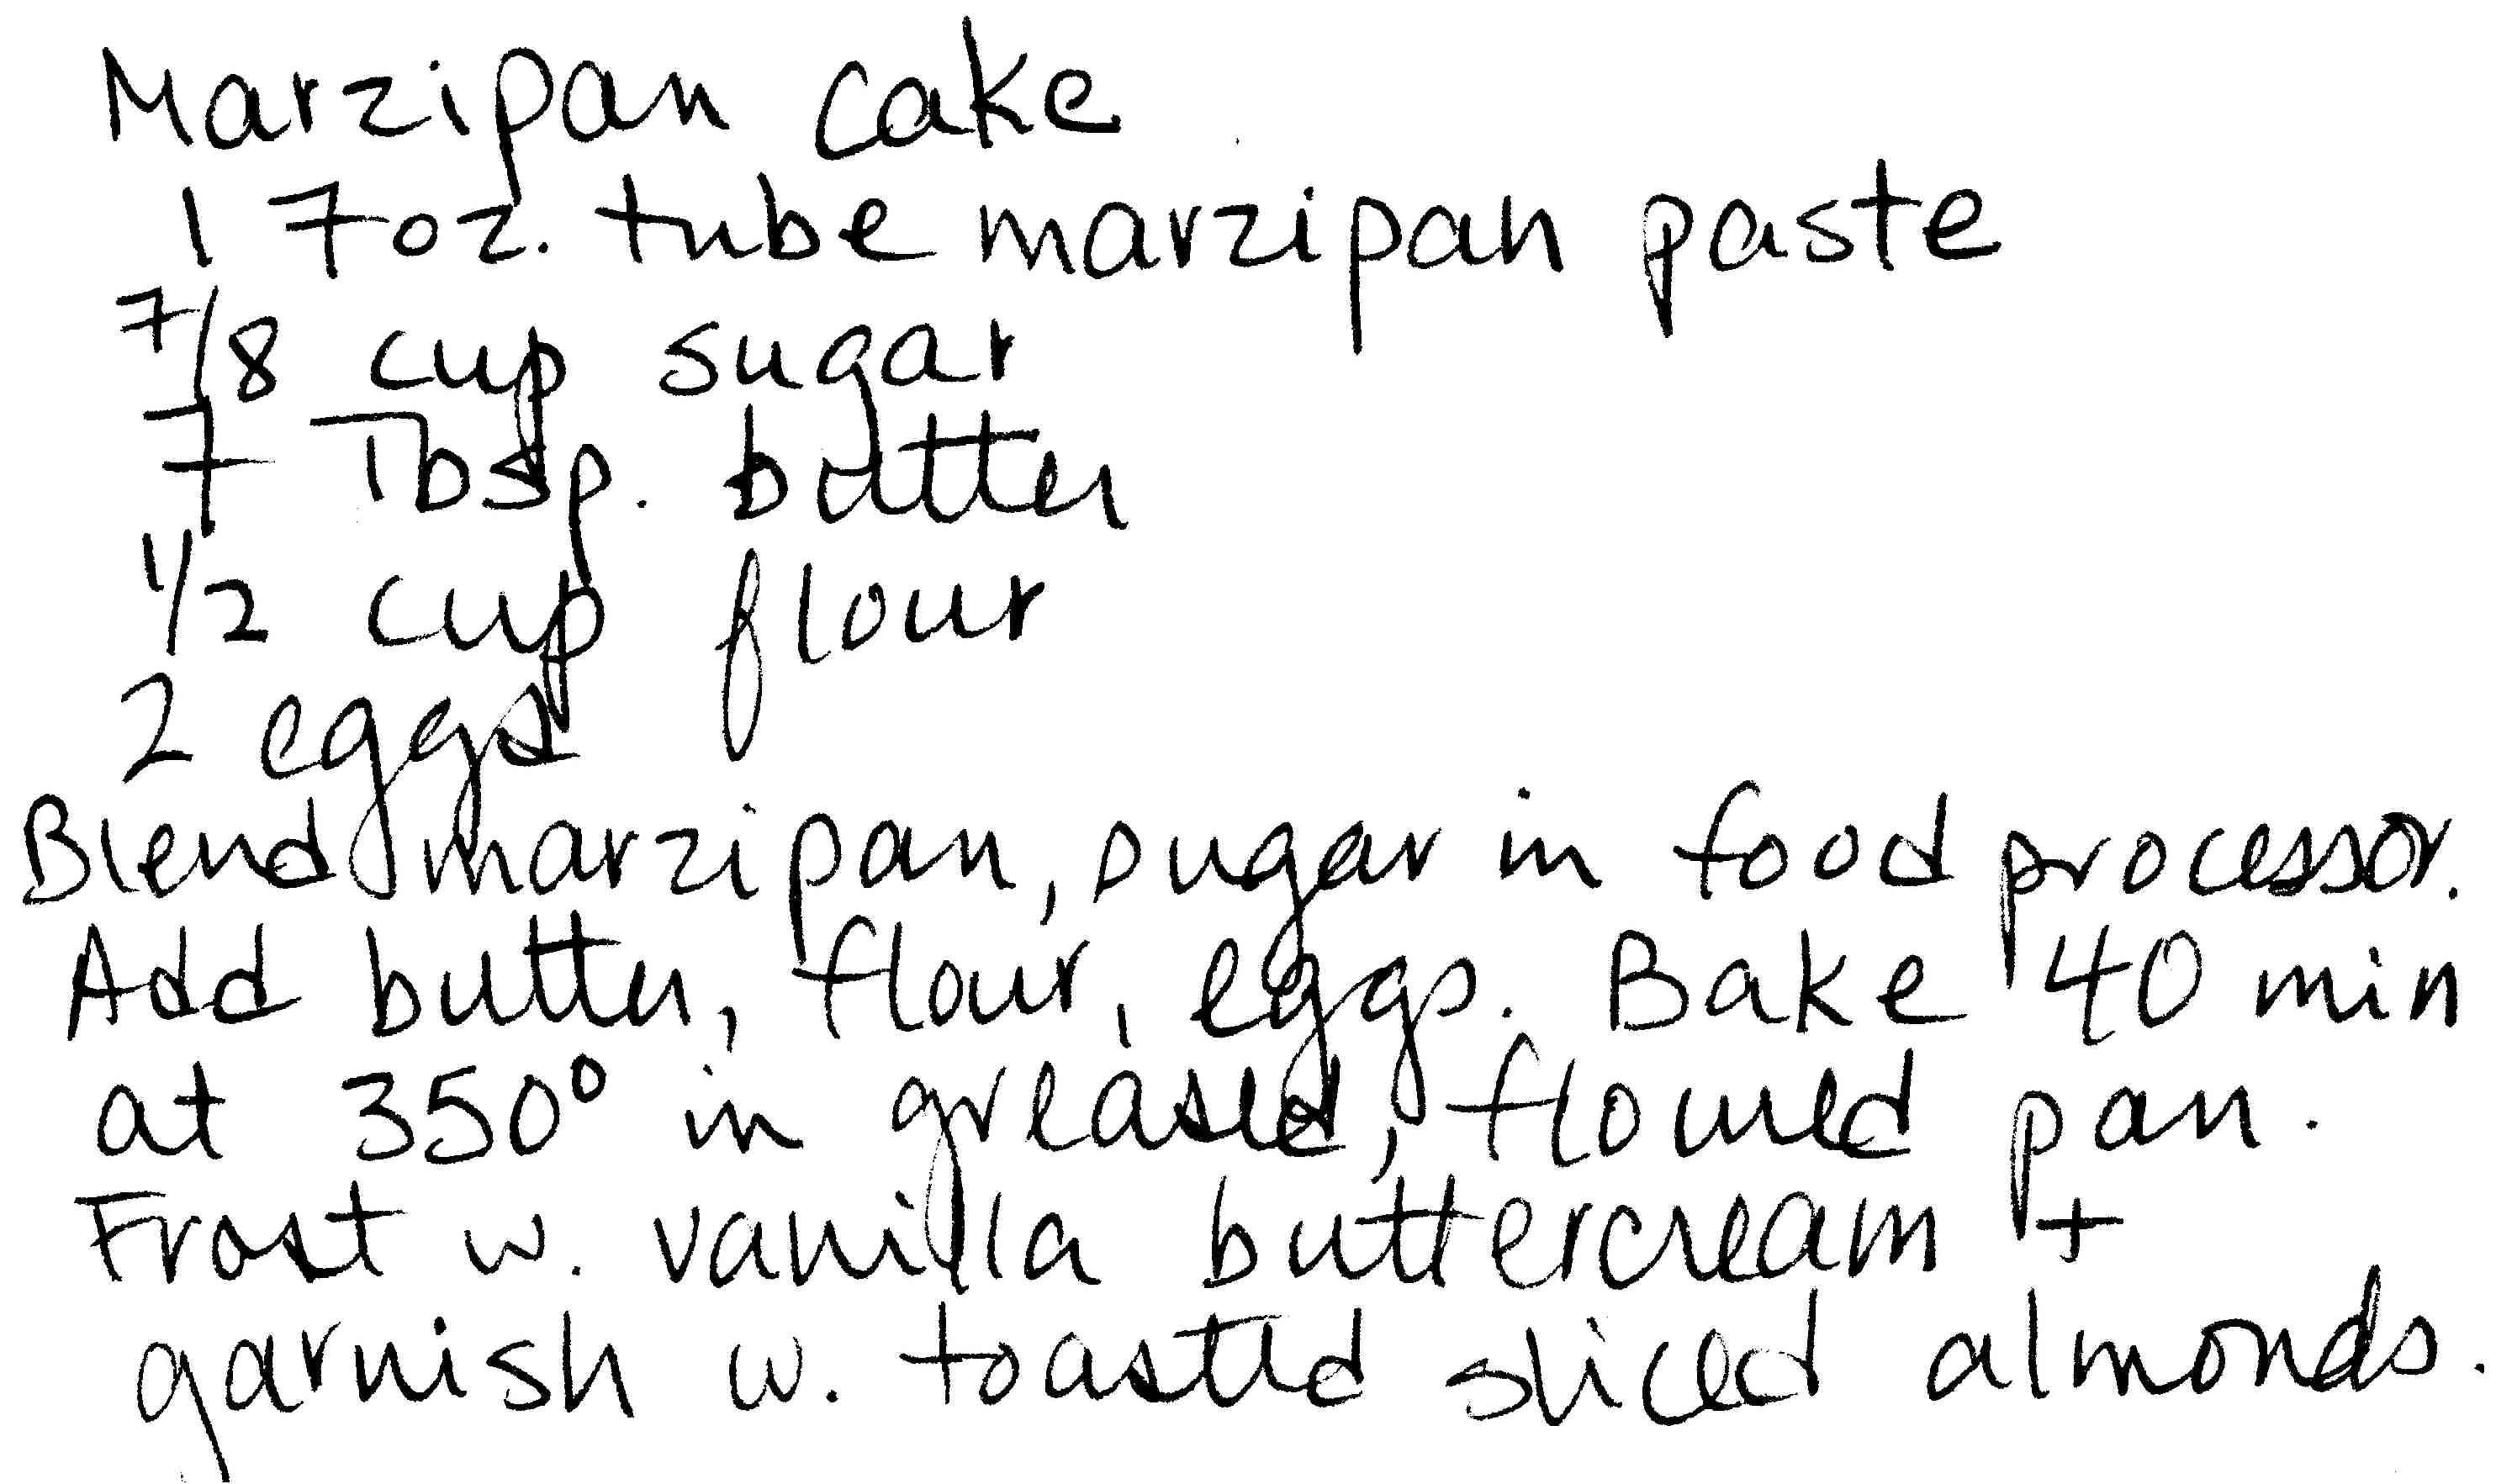 Marzipan cake
1 7oz. tube marzipan paste
7/8 cup sugar
7 Tbsp. butter
1/2 cup flour
2 eggs
Blend marzipan, sugar in food processor.
Add butter, flour, eggs. Bake 40 min
at 350° in greased, floured pan.
Frost w. vanilla buttercream +
garnish w. toasted sliced almonds.